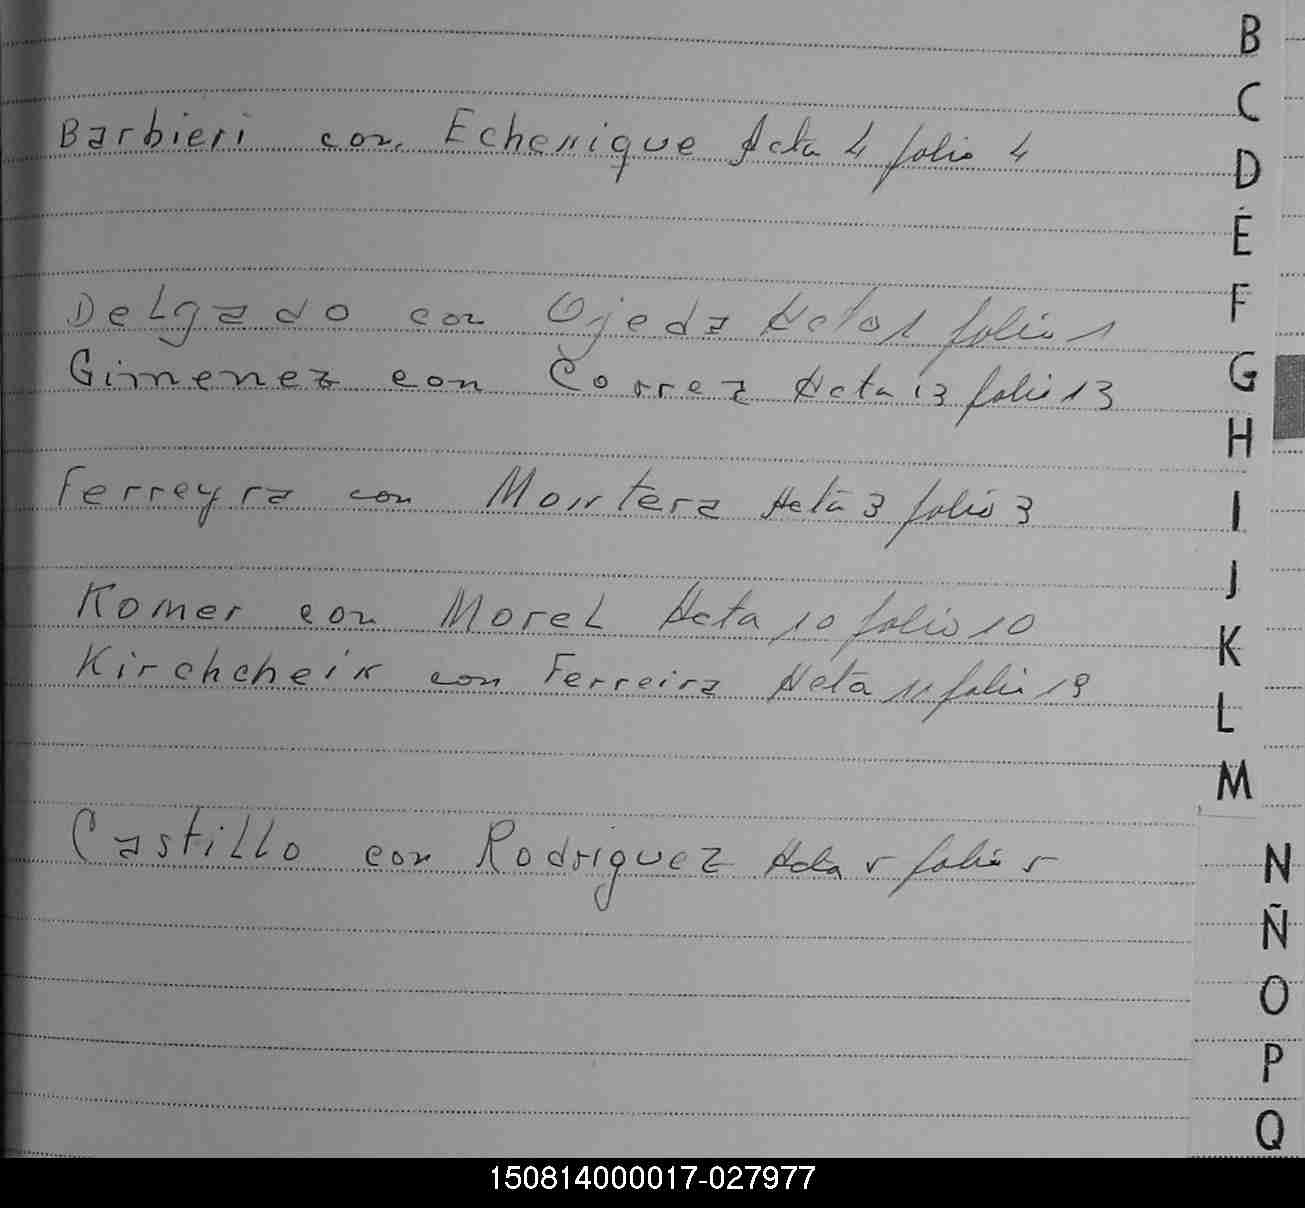 B
C
Barbieri con Echenique Acta 4 folio 4
D
E
F
Delgado con Ojeda Acta 1 folio 1
Gimenez con Correa Acta 13 folio 13
G
H
Ferreyra con Montera Acta 3 folio 3
I
J
Komer con Morel Acta 10 folio 10
K
Kirchcheik con Ferreira Acta 11 folio 19
L
M
Castillo con Rodriguez Acta 5 folio 5
N
Ñ
O
P
Q
150814000017-027977